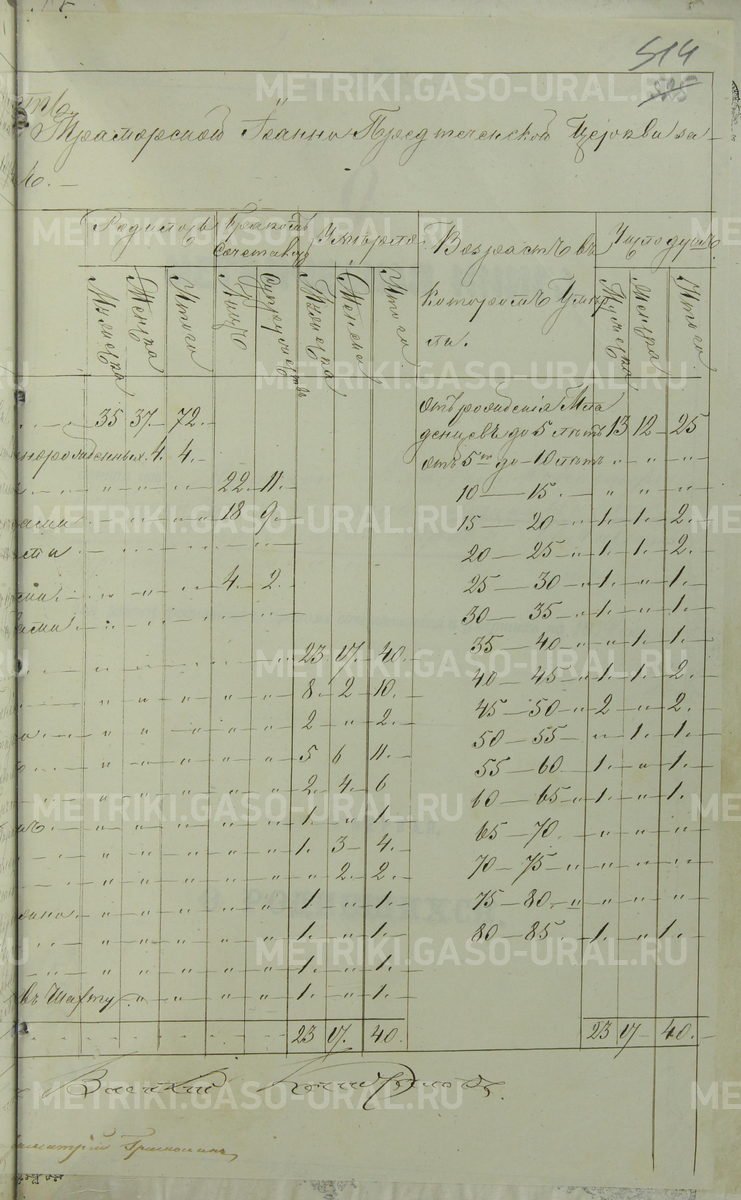 514
525
Мраморской Іоанно Предтеченской Церкви за
Родилось Бракомъ Сочетавш Умерло Возрастъ въ Число душъ
которомъ Умер
ли.
Мужеска Женска Итого Лицъ Супружествъ Мужеска Женска Итого Мужеска Женска Итого
35 37 72
Отъ рожденія Мла
денцевъ до 5 лѣтъ 13 12 25
4. 4. отъ 5ти до 10 лѣтъ " " "
" " " 22 11. 10 — 15. " " "
" " 18 9. 15 — 20 1. 1. 2.
20 — 25 1. 1. 2.
" 4. 2. 25 — 30 1. " 1.
30 — 35 1. " 1.
23 17. 40. 35 — 40 " 1. 1.
" " " " " 8. 2 10. 40 — 45 1. 1. 2.
" " " " " 2 " 2. 45 — 50 2 " 2.
50 — 55 " 1. 1.
" " " " " 5 6 11. 55 — 60 1. " 1.
" " " " " 2. 4. 6 60 — 65 1. " 1.
" " " " " 1. " 1. 65 — 70. " " "
" " " " 1. 3 4. 70 — 75 " " "
" " " " " " 2. 2. 75 — 80. " " " "
" " " " " 1. " 1. 80 — 85. 1. " 1.
" " " " 1. " 1.
" " " " 1. " 1.
въ Шахту " " " " 1. " 1.
23 17. 40. 23 17 40.
METRIKI.GASO-URAL.RU